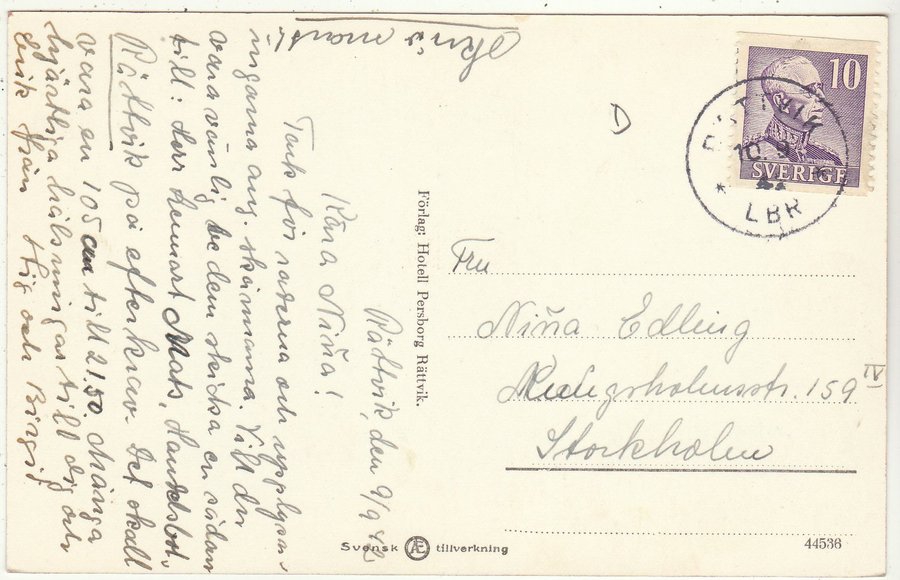 Rättvik, den 9/9 42
Kära Niña!
Tack för raderna och upplysn-
ingarna ang. skärmarna. Vill du
vara vänlig be dem skicka en sådan
till: Herr Lennart Mats, Handelsbok.,
Rättvik på efterkrav. Det skall
vara en 105 cm till 21.50. Många
hjärtliga hälsningar till dig och
Erik från Stig och Birgit
Förlag: Hotell Persborg Rättvik.
10
SVERIGE
RÄTTVIK
10. 9
LBR
Fru
Niña Edling
159 IV
Stockholm
Svensk Æ tillverkning
44536